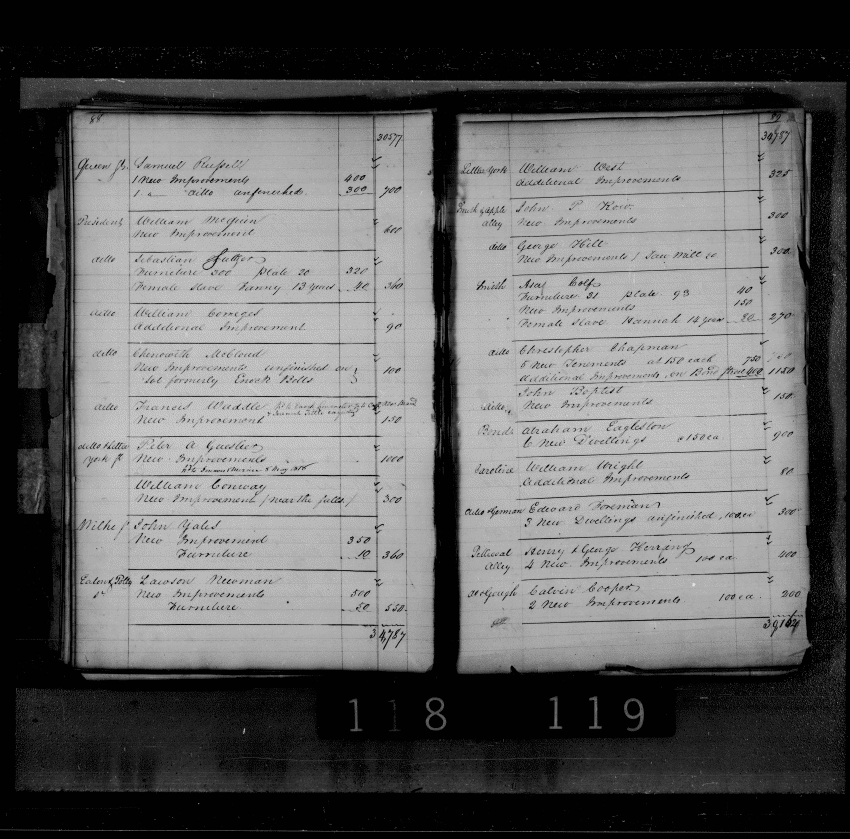 88
30577
Queen St. Samuel Russell
1 New Improvements 400
1 " ditto unfinished 300 700
President William McGuin
New Improvement 600
ditto Sebastian
Furniture 300 plate 20 320
Female slave Fanny 13 years 40 360
ditto William Correges
Additional Improvement 90
ditto Chenowith McCloud
New Improvements unfinished on
Lot formerly Enock Betts 100
ditto Francis Waddle
New Improvement 150
ditto & Little Peter A Guestier
York St New Improvements 1000
William Conway
New Improvement / near the falls / 300
Wilke St John Yates
New Improvement 350
Furniture 10 360
Eaton & Petty Lawson Newman
St New Improvements 500
Furniture 50 550
34,787
89
34787
Little York William West
Additional Improvements 325
& apple John P
alley New Improvements 300
ditto George Hilt
New Improvements / Saw Mill 300
Smith Asas Colf
Furniture 31 plate 93 40
New Improvements 150
Female Slave Hannah 14 years 80 270
ditto Christopher Chapman
5 New Tenements at 150 each 750
Additional Improvements on Bond Street 400 1150
John Baptist
ditto New Improvements 150
Bond Abraham Eagleston
6 New Dwellings a 150 ea 900
Caroline William Wright
Additional Improvements 80
ditto & German Edward Foreman
3 New Dwellings unfinished, 100 ea 300
Petticoat Henry & George Herring
Alley 4 New Improvements 100 ea. 400
Gough Calvin Cooper
2 New Improvements 100 ea. 200
118 119